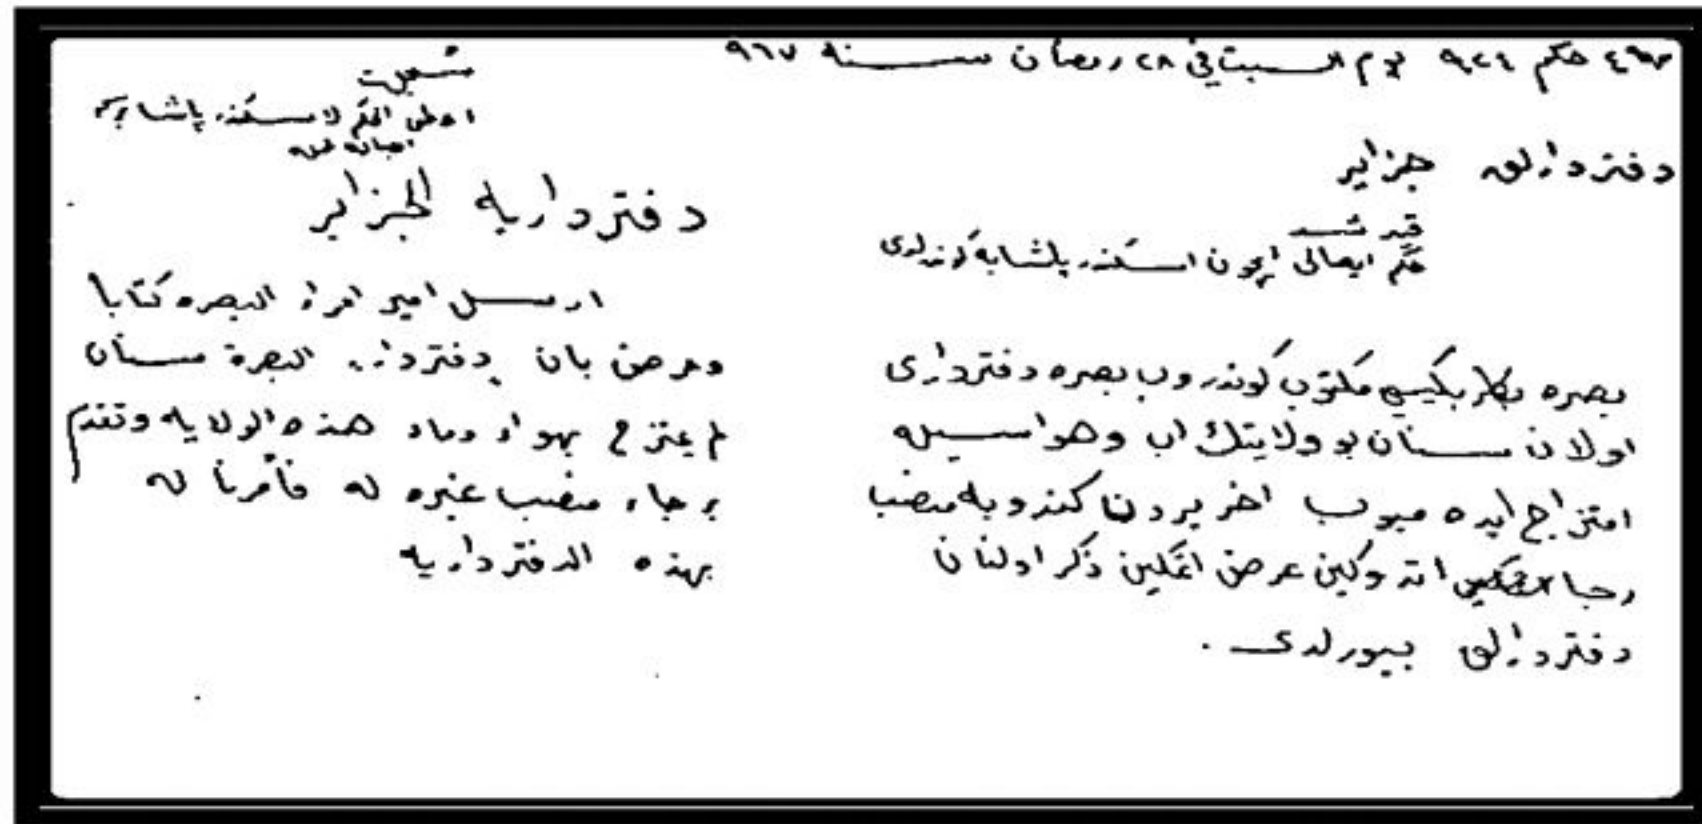 حكم ٩٢٤ يوم السبت في ٢٨ رمضان سنة ٩٦٧
دفتردارلق جزاير
قيد شد
حكم ايصالى ايچون اسكندر پاشايه كوندرلدى
بصره بكلربكيسى مكتوب كوندروب بصره دفتردارى
اولان سنان بو ولايتك اب وهواسيله
امتزاج ايده ميوب اخر يردن كندويه منصب
رجا اتدوكين عرض اتمكين ذكر اولنان
دفتردارلق بيورلدى .
سجلت
اعطى الحكم لاسكندر پاشا
دفتردارية الجزاير
ارسل امير امراء البصره كتابا
وعرض بان دفتردار البصرة سنان
لم يمتزج بهواء وماء هذه الولايه وتقدم
برجاء منصب غيره له فأمرنا له
بهذه الدفتردارية